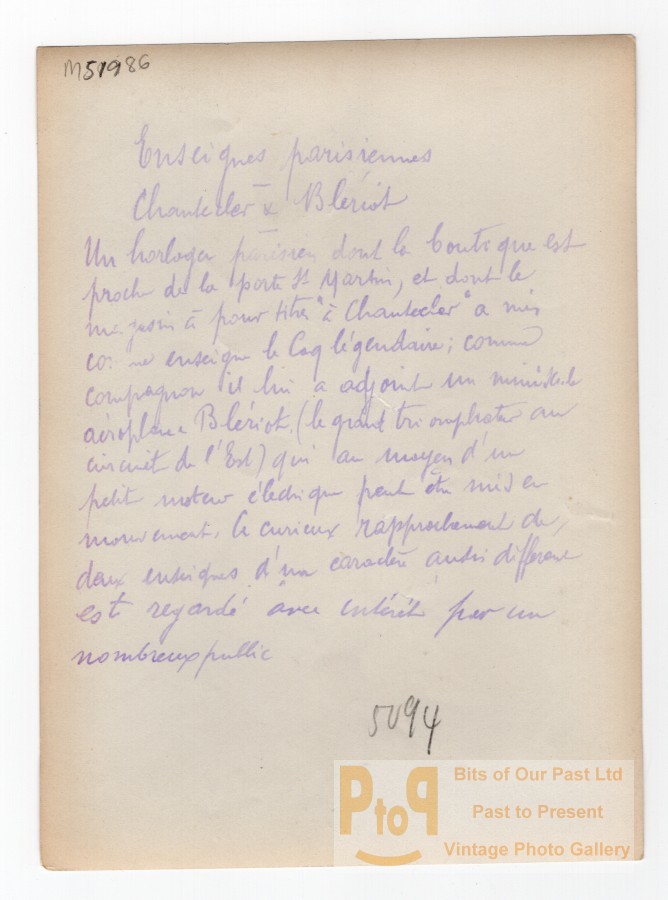 M51986
Enseignes parisiennes
Chantecler & Blériot
Un horloger parisien dont la boutique est
proche de la porte St Martin, et dont le
magasin a pour titre "à Chantecler" a mis
comme enseigne le Coq légendaire; comme
compagnon il lui a adjoint un minuscule
aéroplane Blériot. (le grand triomphateur au
circuit de l'Est) qui au moyen d'un
petit moteur électrique peut être mis en
mouvement. Ce curieux rapprochement de
deux enseignes d'un caractère aussi différent
est regardé avec intérêt par un
nombreux public
5094
PtoP
Bits of Our Past Ltd
Past to Present
Vintage Photo Gallery